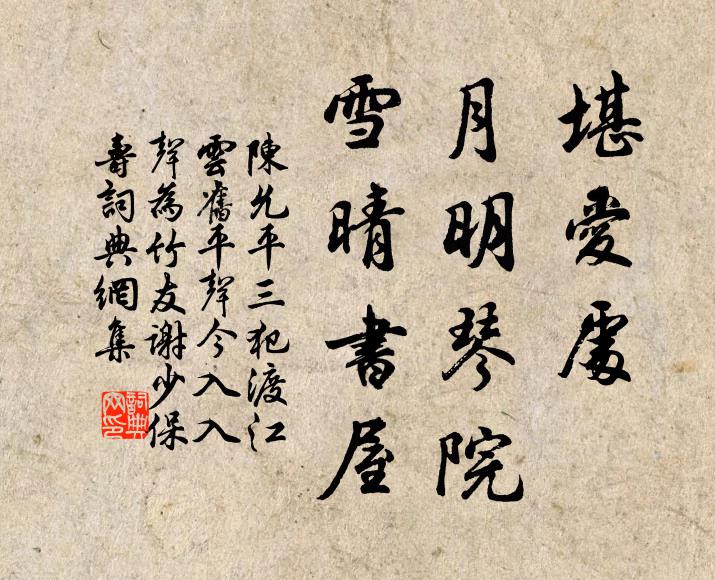 堪愛處
月明琴院
雪晴書屋
陳允平三犯渡江
雲舊平聲今入入
聲為竹友謝少保
壽詞典網集
詞典
网印